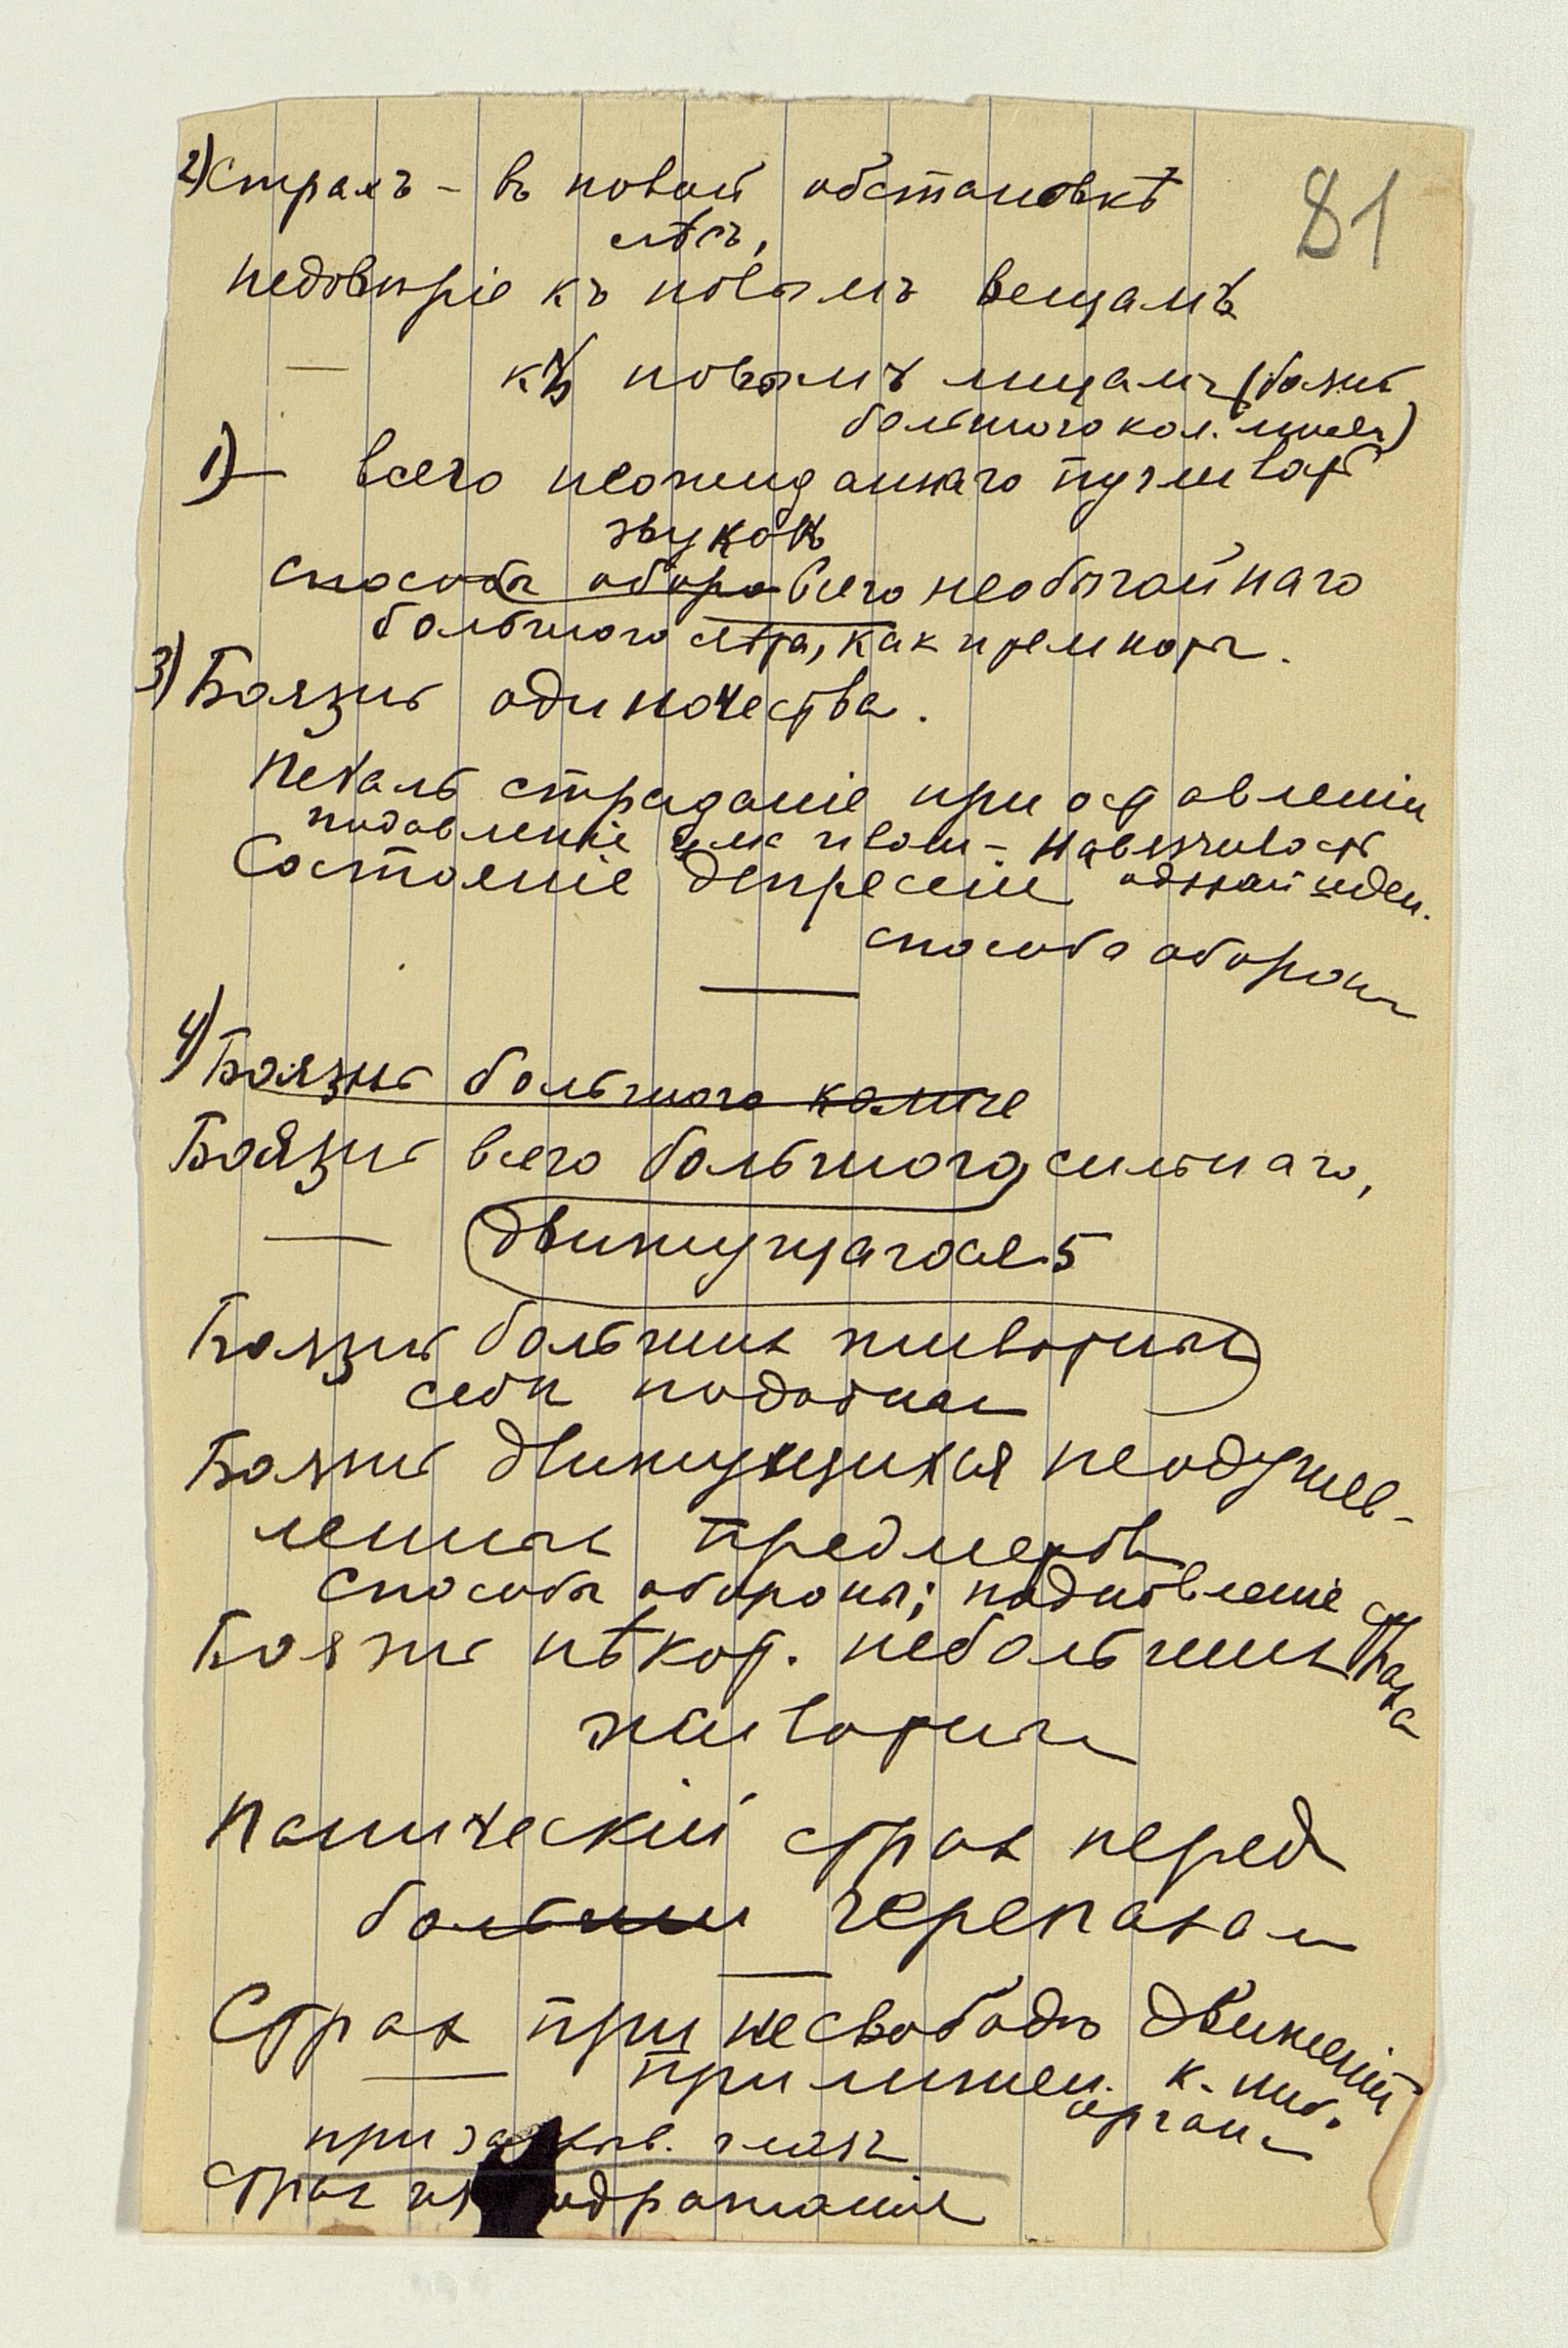 81
2) Страхъ – въ новой обстановкѣ
недовѣріе къ новымъ вещамъ
— къ новымъ лицамъ (боязнь
большого кол. людей)
1) — всего неожиданнаго пугливость
звуковъ
способы оборо всего необычайнаго
большого свѣта, как и темноты.
3) Боязнь одиночества.
Печаль страданіе при оставленіи
подавленіе Навязчивость
Состояніе депрессіи одной идеи.
способа обороны
4) Боязнь большого количе
Боязнь всего большого, сильнаго,
— движущагося 5
Боязнь больших животных
себѣ подобных
Боязнь движущихся неодушев-
ленных предметов
Способы обороны; подновленіе страха
Боязнь нѣкот. небольших
животных
Паническій страх перед
больши черепахам
Страх при несвободѣ движеній
— при лишен. к.-ниб.
орган
при глаз
Страх одражаніе